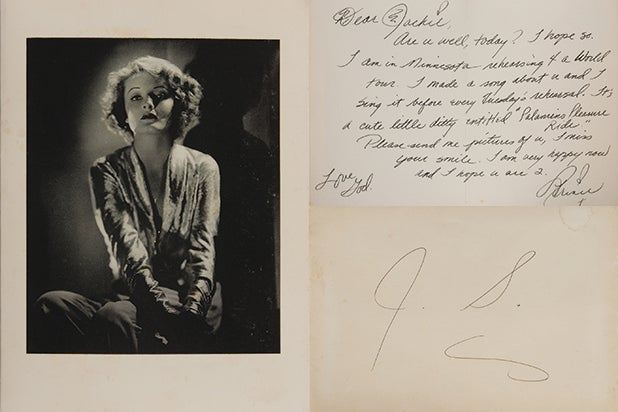 Dear Jackie,
Are u well, today? I hope so.
I am in Minnesota rehearsing 4 a World
tour. I made a song about u and I
sing it before every Tuesday's rehearsal. It's
a cute little ditty entitled "Palamino Pleasure
Ride".
Please send me pictures of u, I miss
your smile. I am very happy now
and I hope u are 2.
Love
God.
Prince
J. S.